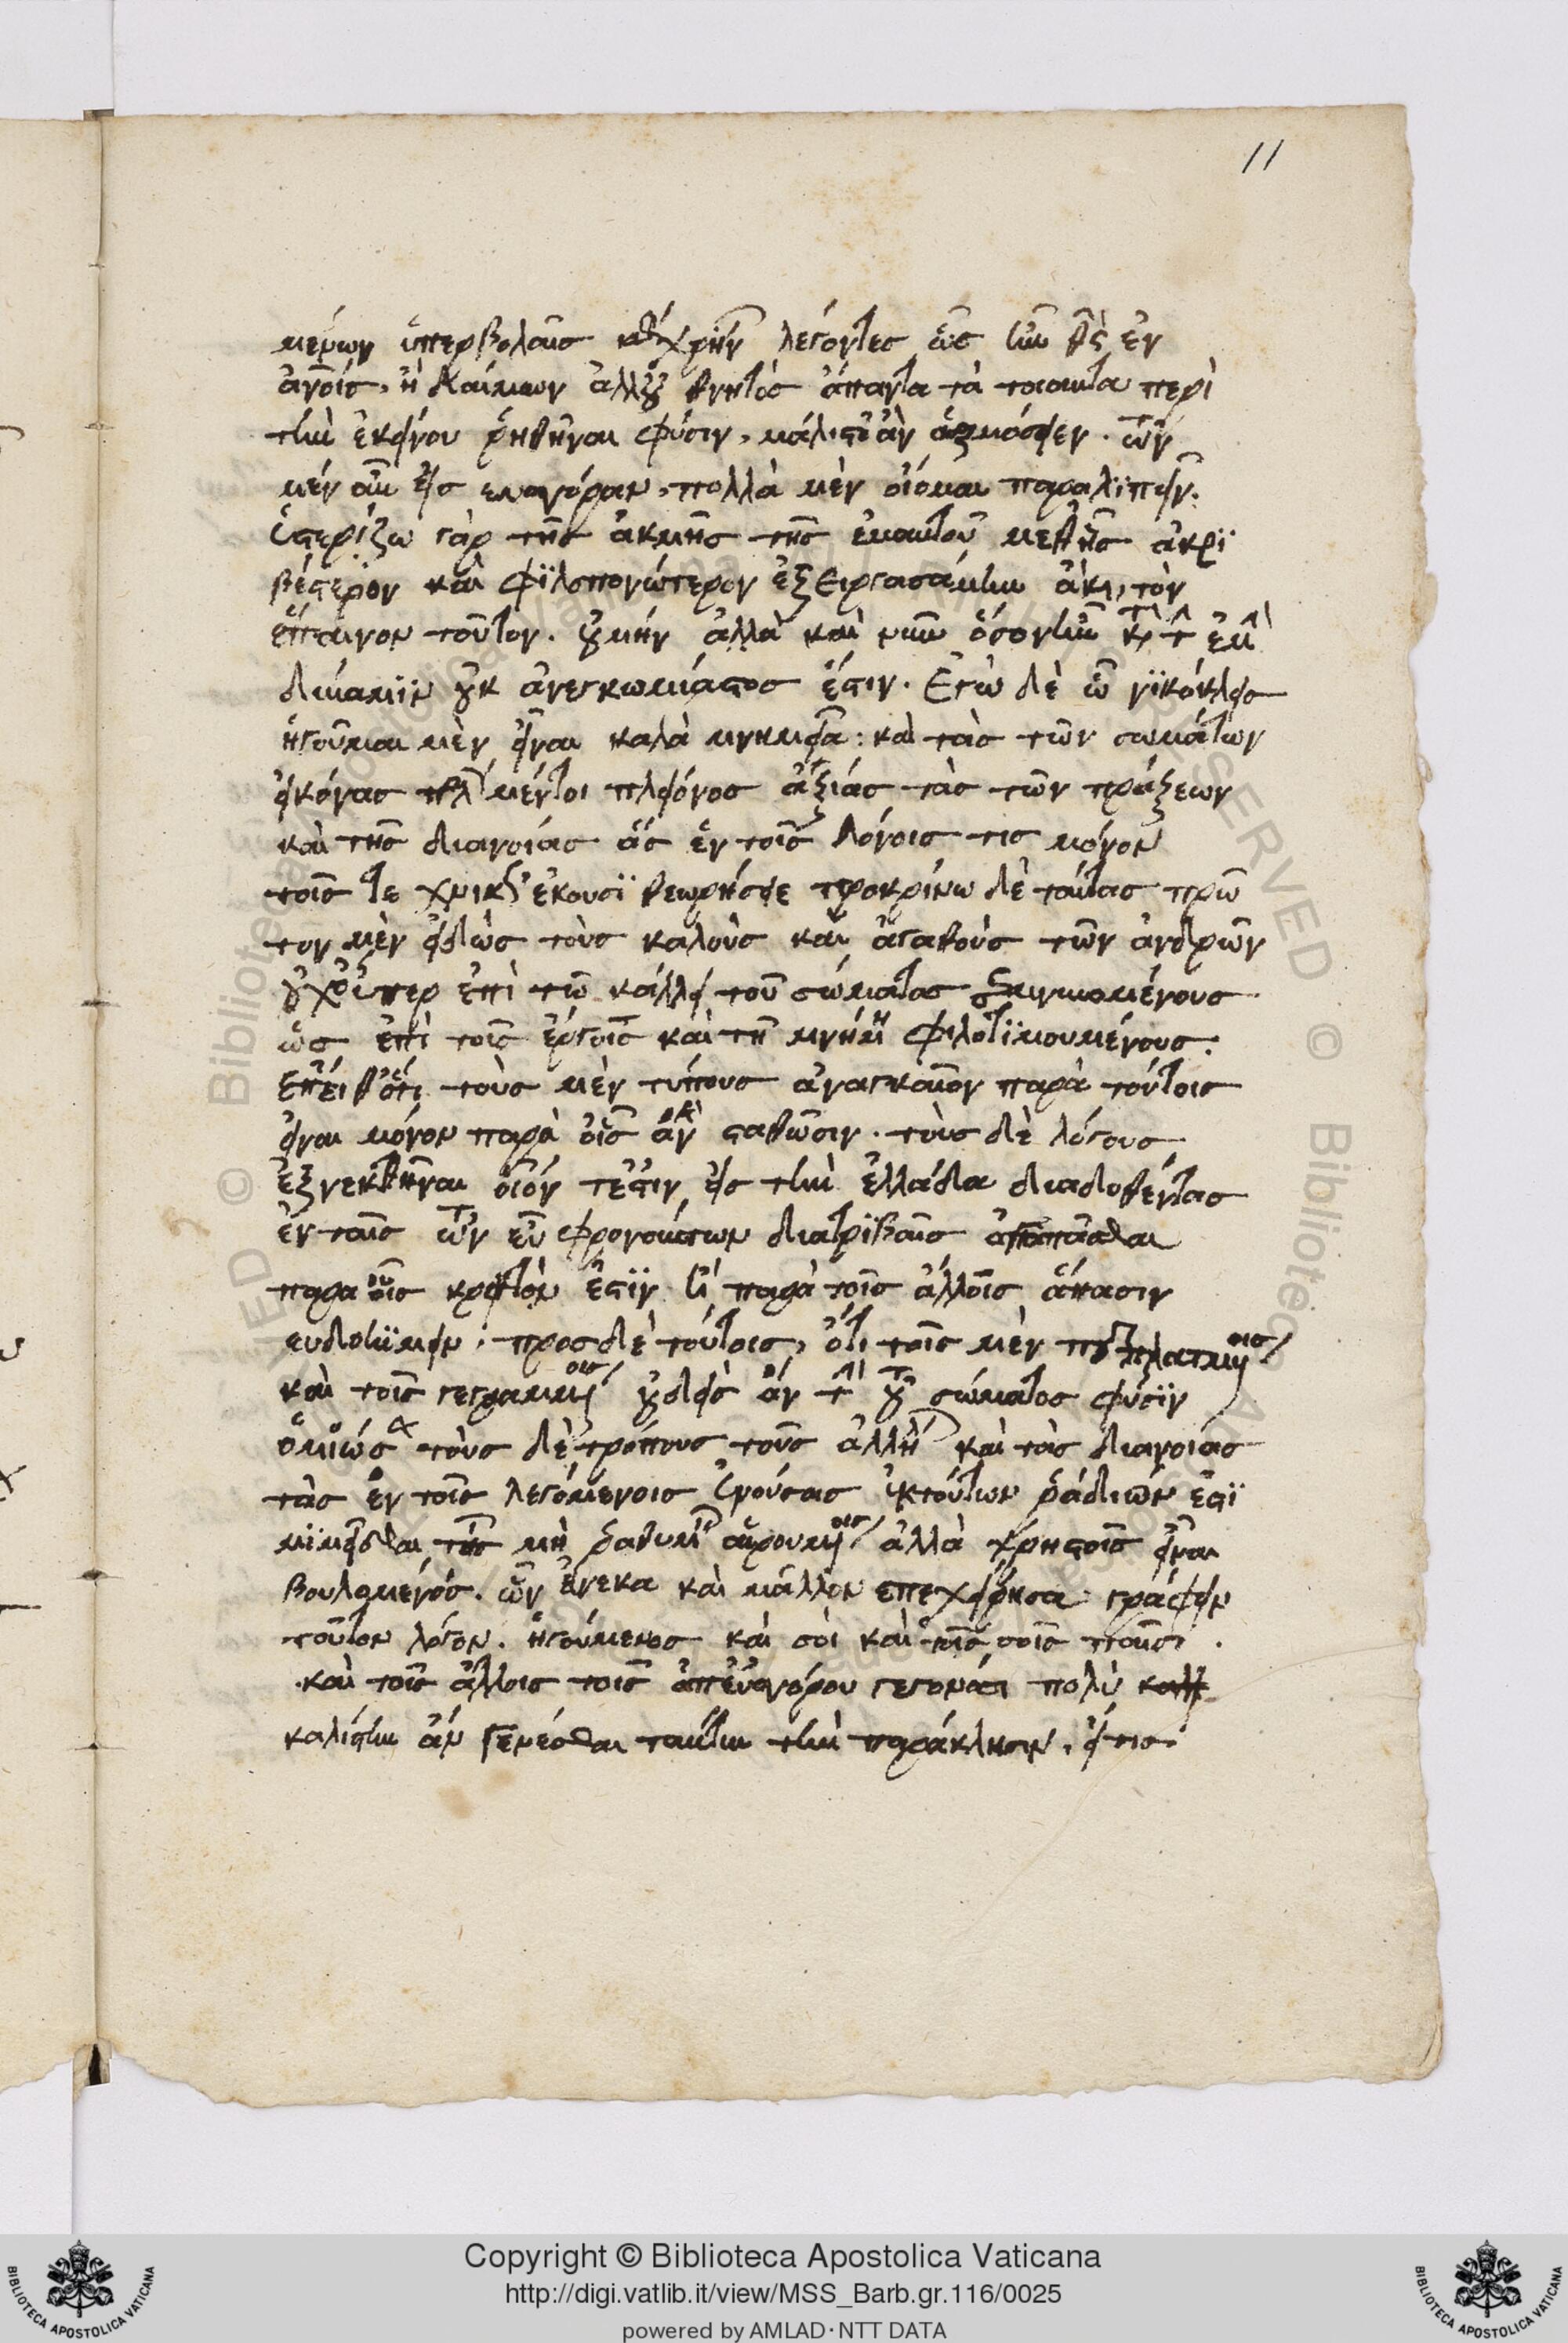 11
μένων ὑπερβολαῖς κέχρηνται λέγοντες ὡς ἦν θς ἐν
ἀνοις, ἢ δαίμων ἀλλ' οὐ θνητὸς ἅπαντα τὰ τοιαῦτα περὶ
τὴν ἐκείνου ῥηθῆναι φύσιν, μάλιστ' ἂν ἁρμόσειεν. τῶν
μὲν οὖν εἰς ευαγόραν, πολλὰ μὲν οἴομαι παραλϊπεῖν.
ὑστερίζω γὰρ τῆς ἀκμῆς τῆς ἐμαυτοῦ μεθ' ἧς ἀκρϊ
βέστερον καὶ φϊλοπονώτερον ἐξειργασάμην ἂν τὸν
ἔπαινον τοῦτον. οὐ μὴν ἀλλὰ καὶ νῦν ὅσον ἦν κατὰ τὴν ἐμὴν
δύναμϊν οὐκ ἀνεγκωμίαστος ἔστιν. Ἐγὼ δὲ ὦ νϊκόκλεις
ἡγοῦμαι μὲν εἶναι καλὰ μνημεῖα: καὶ τὰς τῶν σωμάτων
εἰκόνας πολὺ μέντοι πλείονος ἀξίας τὰς τῶν πράξεων
καὶ τῆς διανοίας ἃς ἐν τοῖς λόγοις τις μόνον
τοῖς τεχνικῶς ἔχουσϊ θεωρήσειε προκρίνω δὲ ταύτας πρῶ
τον μὲν εἰδὼς τοὺς καλοὺς καὶ ἀγαθοὺς τῶν ἀνδρῶν
οὐχ οὕτω περ ἐπὶ τῶ κάλλει τοῦ σώματος σεμνυνομένους
ὡς ἐπὶ τοῖς ἔργοις καὶ τῆ μνήμη φιλοτϊμουμένους:
Ἔπειθ' ὅτι τοὺς μὲν τύπους ἀναγκαῖον παρὰ τούτοις
εἶναι μόνον παρὰ οἷς ἂν σταθῶσιν. τοὺς δὲ λόγους
ἐξενεχθῆναι οἷόν τέστιν εἰς τὴν ἑλλάδα διαδοθέντας
ἐν ταῖς τῶν εὖ φρονούντων διατρϊβαῖς ἀγαπᾶσθαι
παρα οἷς κρεῖττόν ἐστϊν ἢ παρὰ τοῖς ἄλλοις ἅπασιν
ευδοκϊμεῖν: προς δὲ τούτοις, ὅτι τοῖς μὲν πεπλασμένοις
καὶ τοῖς γεγραμμένοις οὐδεὶς ἂν τὴν τοῦ σώματος φύσϊν
ὁμοιώσα τοὺς δὲ τρόπους τοὺς ἀλλήλων καὶ τὰς διανοίας
τὰς ἐν τοῖς λεγομένοις ἐνούσας ἐκ τούτων ῥάδιόν ἐστϊ
μϊμεῖσθαι τοῖς μὴ ῥαθυμεῖν αἱρουμένοις ἀλλὰ χρηστοῖς εἶναι
βουλομένοις. ὧν ἕνεκα καὶ μᾶλλον επεχείρησα γράφειν
τοῦτον λόγον. ἡγούμενος καὶ σοὶ καὶ τοῖς σοῖς παισὶ.
καὶ τοῖς ἄλλοις τοῖς ἀπ' εὐαγόρου γεγονόσι πολὺ
καλίστην ἂν γενέσθαι ταύτην τὴν παράκλησιν. εἴ τις
Copyright © Biblioteca Apostolica Vaticana
http://digi.vatlib.it/view/MSS_Barb.gr.116/0025
powered by AMLAD · NTT DATA